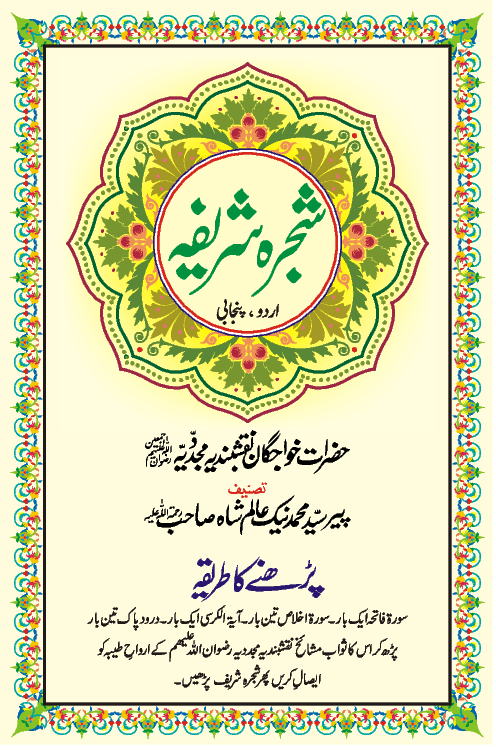 شجرہ شریفہ
اردو ، پنجابی
حضرات خواجگان نقشبندیہ مجددّیہ رضوان اللہ علیہم اجمعین
تصنیف
پیر سیّد محمد نیک عالم شاہ صاحب رحمۃ اللہ علیہ
پڑھنے کا طریقہ
سورۃ فاتحہ ایک بار۔ سورۃ اخلاص تین بار۔ آیۃ الکرسی ایک بار۔ درود پاک تین بار
پڑھ کر اس کا ثواب مشائخ نقشبندیہ مجددیہ رضوان اللہ علیھم کے ارواحِ طیبہ کو
ایصال کریں پھر شجرہ شریف پڑھیں۔